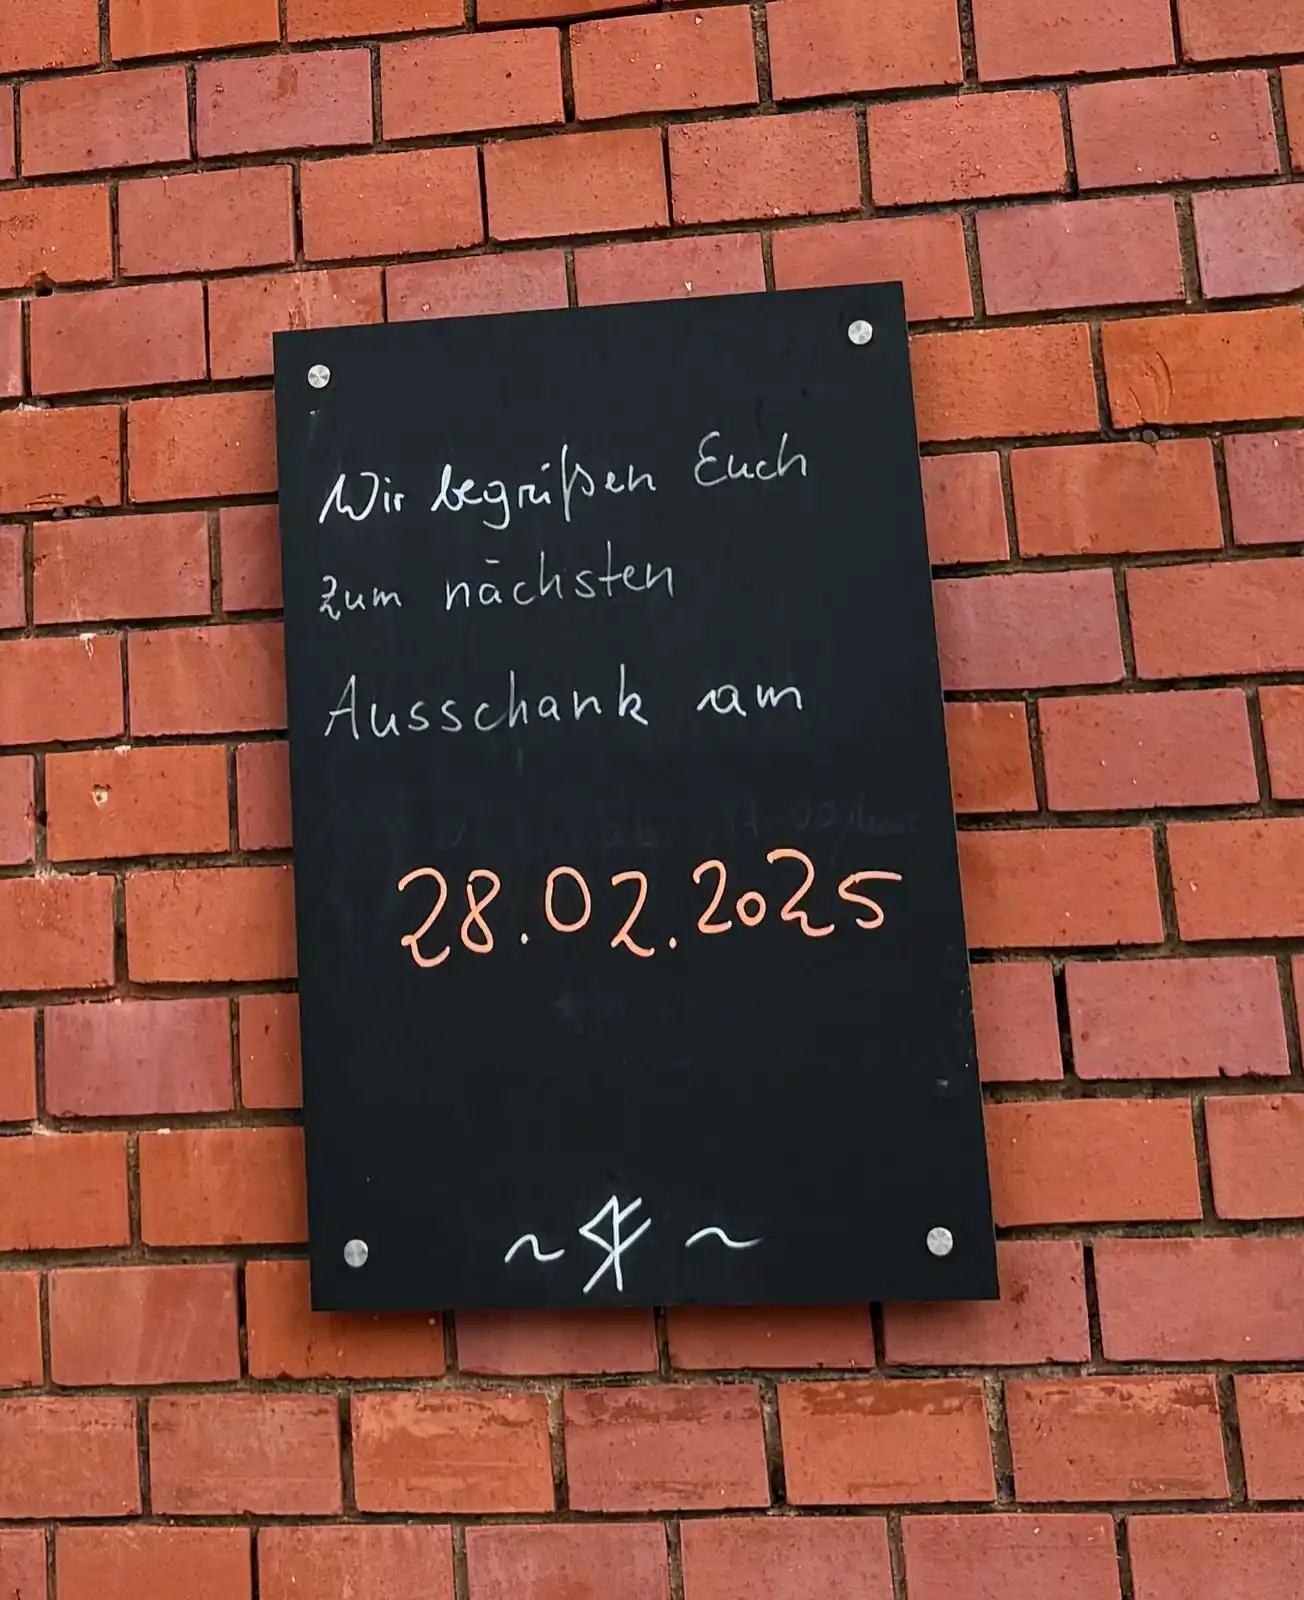 Wir begrüßen Euch
zum nächsten
Ausschank am
28.02.2025